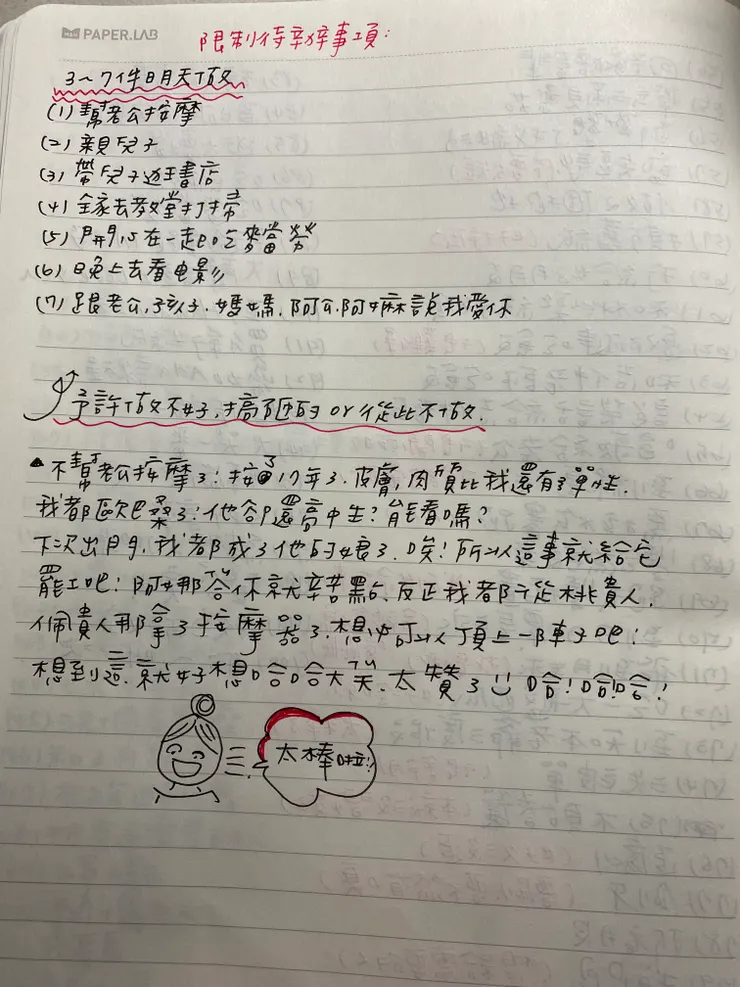 PAPER.LAB
限制待辦事項:
3~7件明天做
(1) 幫老公按摩
(2) 親兒子
(3) 帶兒子逛書店
(4) 全家去教堂打掃
(5) 開心在一起吃麥當勞
(6) 晚上去看电影
(7) 跟老公,孩子.媽媽.阿公.阿嬤說我愛你
予許做不好,搞砸的 or 從此不做.
▲不幫老公按摩了:按了17年了.皮膚,肉質比我還有彈性.
我都歐巴桑了:他卻還高中生?能看嗎?
下次出門,我都成了他的娘了.唉!所以這事就給它
罷工吧!阿那答你就辛苦點.反正我都許從桃貴人.
佩貴人那拿了按摩器了.想必可以頂上一陣子吧!
想到這.就好想哈哈大笑.太贊了 哈!哈!哈!
太棒啦!!